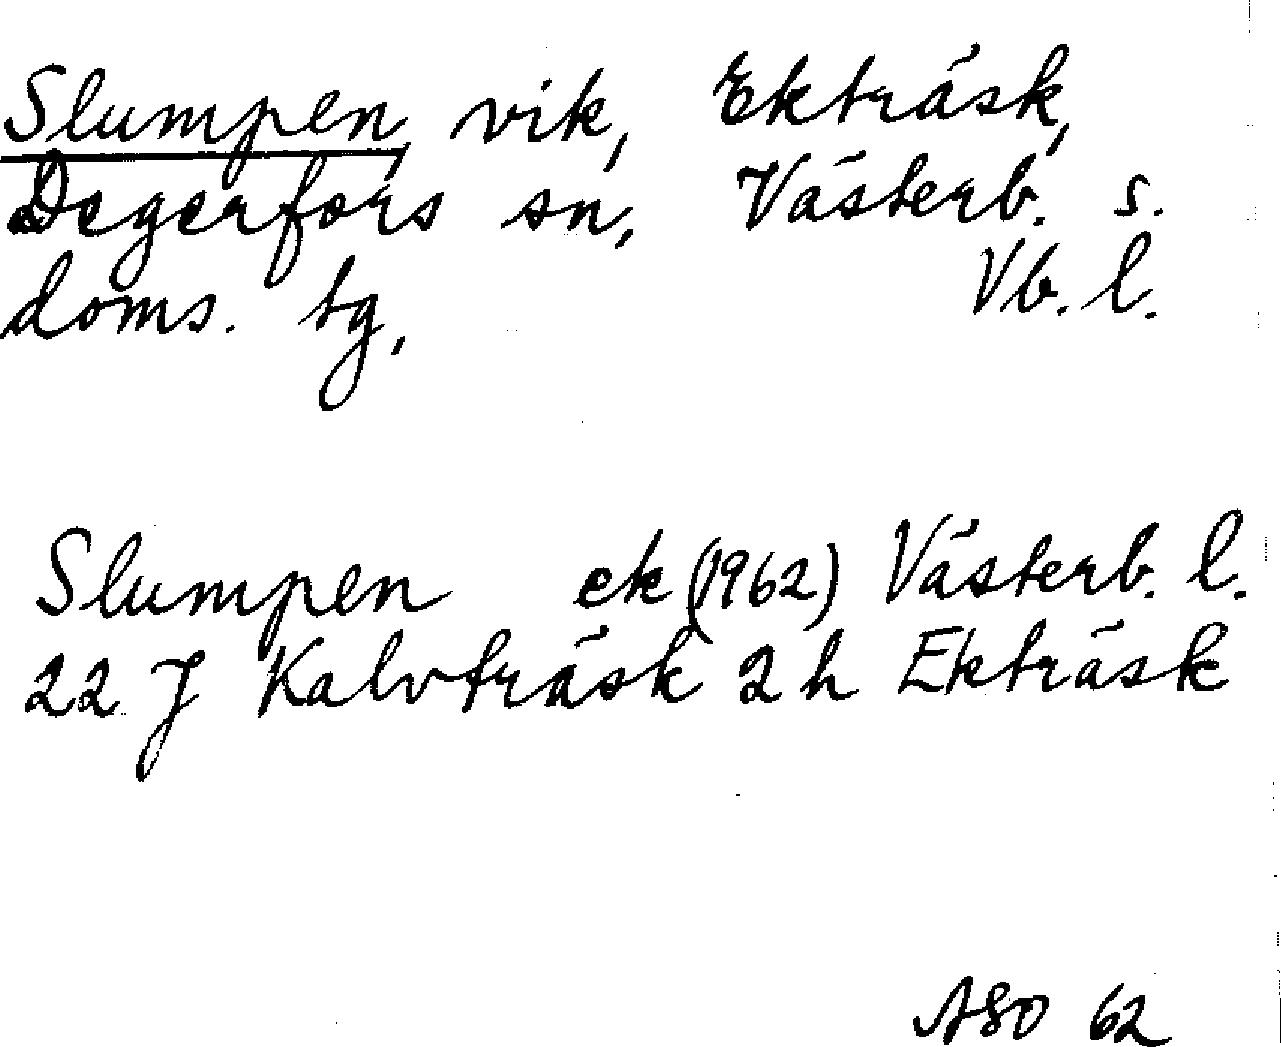 Slumpen, vik, Ekträsk,
Degerfors sn, Västerb. s.
doms. tg, Vb. l.
Slumpen ek (1962) Västerb. l.
22 J Kalvträsk 2 h Ekträsk
ASO 62